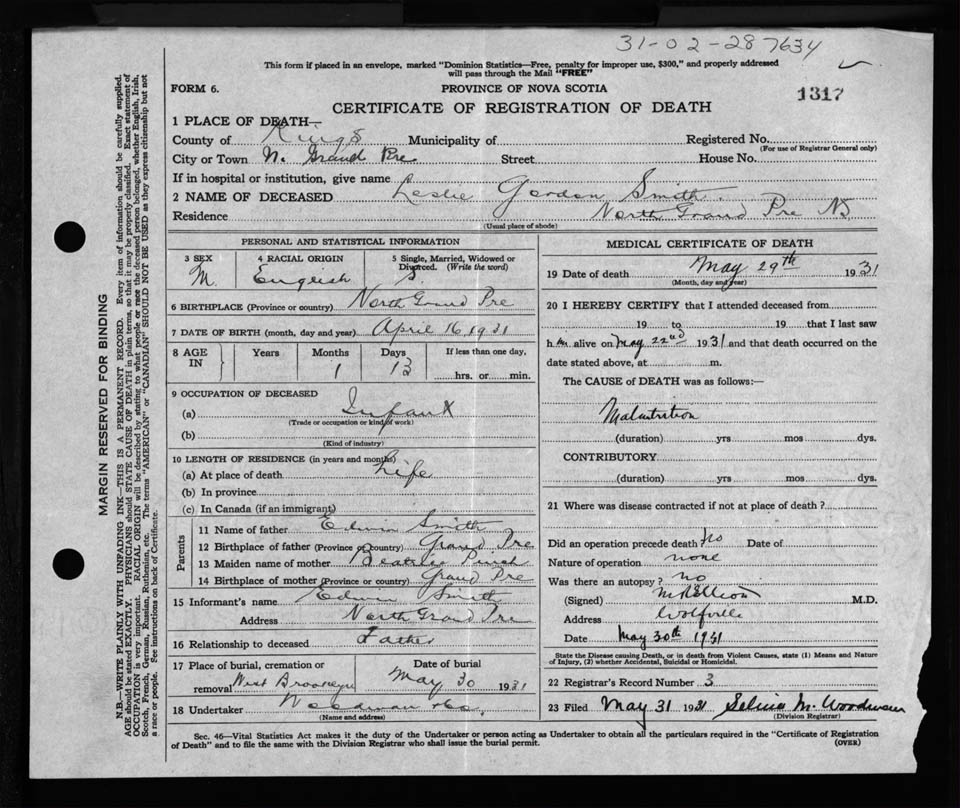 31-02-28 7634
This form if placed in an envelope, marked "Dominion Statistics—Free, penalty for improper use, $300," and properly addressed
will pass through the Mail "FREE"
FORM 6.
PROVINCE OF NOVA SCOTIA
1317
CERTIFICATE OF REGISTRATION OF DEATH
1 PLACE OF DEATH—
County of Kings Municipality of Registered No.
(For use of Registrar General only)
City or Town N. Grand Pre Street House No.
If in hospital or institution, give name
2 NAME OF DECEASED Leslie Gordon Smith.
Residence North Grand Pre NS
(Usual place of abode)
PERSONAL AND STATISTICAL INFORMATION
3 SEX M. 4 RACIAL ORIGIN English 5 Single, Married, Widowed or Divorced. (Write the word) S.
6 BIRTHPLACE (Province or country) North Grand Pre
7 DATE OF BIRTH (month, day and year) April 16, 1931
8 AGE IN Years Months 1 Days 13 If less than one day, hrs. or min.
9 OCCUPATION OF DECEASED
(a) Infant
(Trade or occupation or kind of work)
(b)
(Kind of industry)
10 LENGTH OF RESIDENCE (in years and months)
(a) At place of death Life
(b) In province
(c) In Canada (if an immigrant)
Parents
11 Name of father Edwin Smith
12 Birthplace of father (Province or country) Grand Pre
13 Maiden name of mother Beatrice
14 Birthplace of mother (Province or country) Grand Pre
15 Informant's name Edwin Smith
Address North Grand Pre
16 Relationship to deceased Father
17 Place of burial, cremation or removal West Brooklyn Date of burial May 30 1931
18 Undertaker
(Name and address)
MEDICAL CERTIFICATE OF DEATH
19 Date of death May 29th 1931
(Month, day and year)
20 I HEREBY CERTIFY that I attended deceased from
19 to 19 that I last saw
h im alive on May 22nd 1931 and that death occurred on the
date stated above, at m.
The CAUSE of DEATH was as follows:—
Malnutrition
(duration) yrs mos dys.
CONTRIBUTORY
(duration) yrs. mos. dys.
21 Where was disease contracted if not at place of death?
Did an operation precede death No Date of
Nature of operation none
Was there an autopsy? no
(Signed) M.D.
Address Wolfville
Date May 30th 1931
State the Disease causing Death, or in death from Violent Causes, state (1) Means and Nature
of Injury, (2) whether Accidental, Suicidal or Homicidal.
22 Registrar's Record Number 3
23 Filed May 31 1931 Selina M. Woodman
(Division Registrar)
Sec. 46—Vital Statistics Act makes it the duty of the Undertaker or person acting as Undertaker to obtain all the particulars required in the "Certificate of Registration
of Death" and to file the same with the Division Registrar who shall issue the burial permit. (OVER)
MARGIN RESERVED FOR BINDING
N.B.—WRITE PLAINLY WITH UNFADING INK—THIS IS A PERMANENT RECORD. Every item of information should be carefully supplied.
AGE should be stated EXACTLY. PHYSICIANS should STATE CAUSE OF DEATH in plain terms, so that it may be properly classified. Exact statement of
OCCUPATION is very important. RACIAL ORIGIN will be described by stating to what people or race the deceased person belonged, whether English, Irish,
Scotch, French, German, Russian, Ruthenian, etc. The terms "AMERICAN" or "CANADIAN" SHOULD NOT BE USED as they express citizenship but not
a race or people. See instructions on back of Certificate.